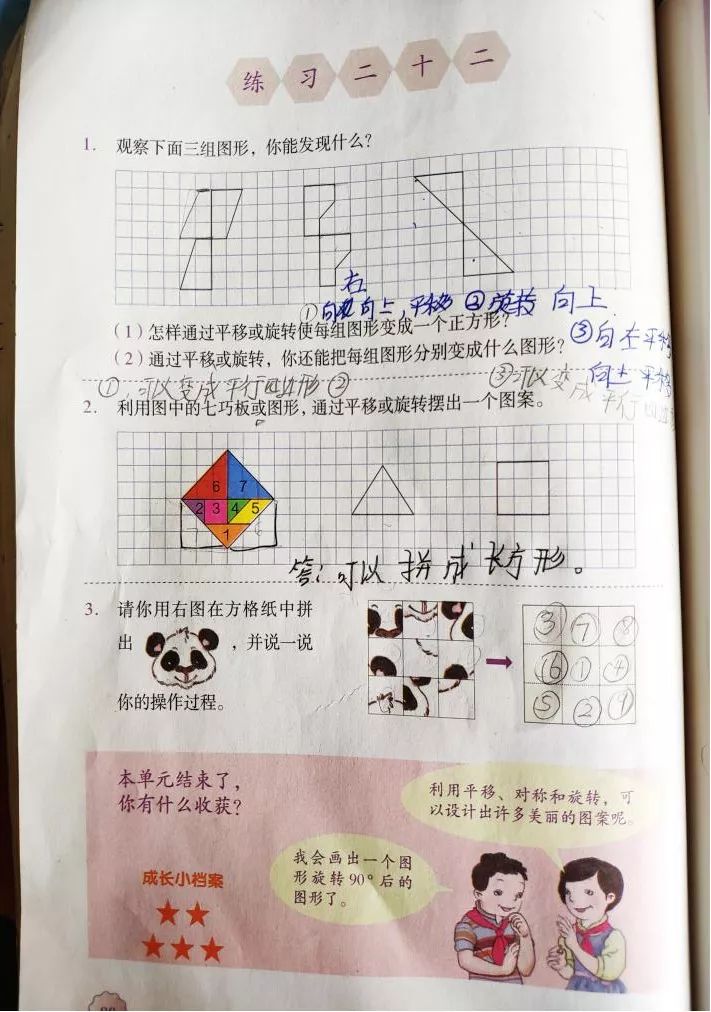 练习二十二
1. 观察下面三组图形，你能发现什么？
右
①向 向上，平移 ②旋转 向上
(1) 怎样通过平移或旋转使每组图形变成一个正方形？
③向左平移
(2) 通过平移或旋转，你还能把每组图形分别变成什么图形？
向上 平移
①，可以变成平行四边形 ②
③可以变成平行四边
2. 利用图中的七巧板或图形，通过平移或旋转摆出一个图案。
6 7
2 3 4 5
1
答：可以拼成长方形。
3. 请你用右图在方格纸中拼
出 ，并说一说
你的操作过程。
③ ⑦ ⑧
⑥ ① ④
⑤ ② ⑨
本单元结束了，
你有什么收获？
利用平移、对称和旋转，可
以设计出许多美丽的图案呢。
我会画出一个图
形旋转90°后的
图形了。
成长小档案